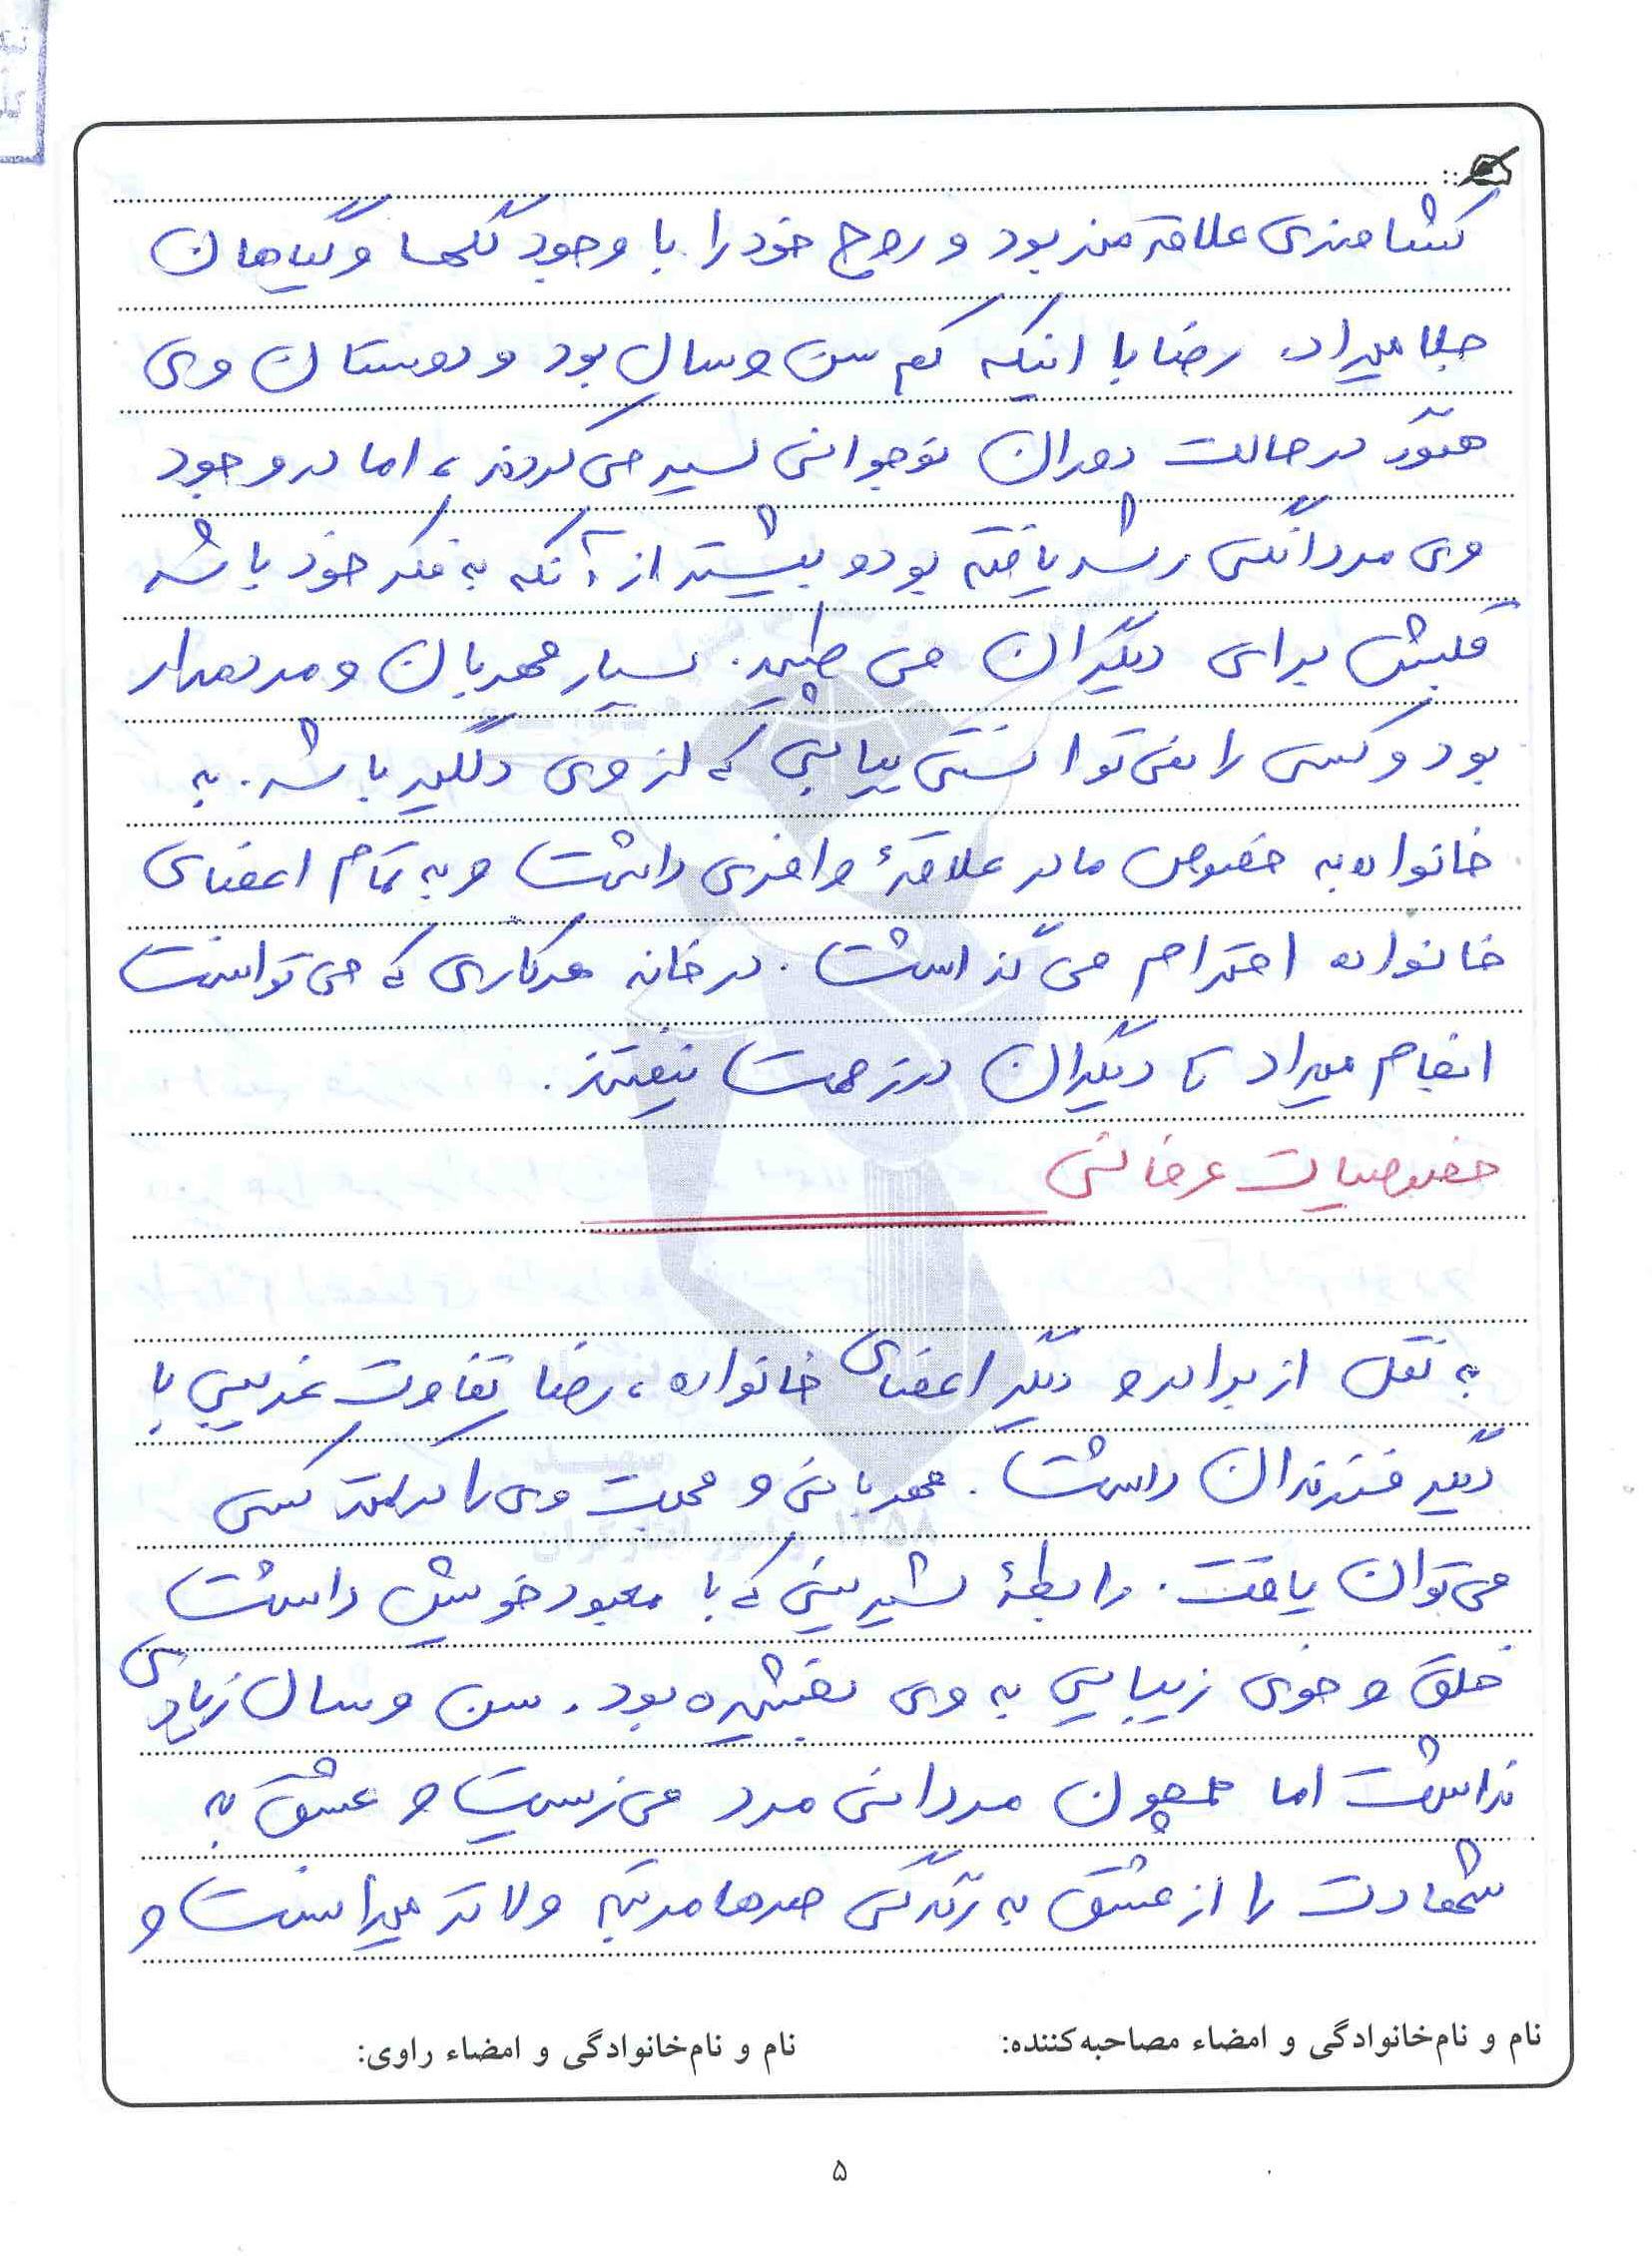 کشاورزی علاقه مند بود و روح خود را با وجود گلها و گیاهان
جلا میداد. رضا با اینکه کم سن و سال بود و دوستان وی
هنوز در حالت دوران نوجوانی سیر می کردند، اما در وجود
وی مردانگی رشد یافته بود و بیشتر از آنکه به فکر خود باشد
قلبش برای دیگران می طپید. بسیار مهربان و مردمدار
بود و کسی را نمی توانستی بیابی که از وی دلگیر باشد. به
خانواده به خصوص مادر علاقهٔ وافری داشت و به تمام اعضای
خانواده احترام می گذاشت. در خانه هر کاری که می توانست
انجام میداد تا دیگران در زحمت نیفتند.
خصوصیات عرفانی
به نقل از برادر و دیگر اعضای خانواده، رضا تفاوت غریبی با
دیگر فرزندان داشت. مهربانی و محبت وی را در کمتر کسی
می توان یافت. رابطهٔ شیرینی که با معبود خویش داشت
خلق و خوی زیبایی به وی بخشیده بود. سن و سال زیادی
نداشت اما همچون مردانی مرد می زیست و عشق به
شهادت را از عشق به زندگی صدها مرتبه والاتر میدانست و
نام و نام‌خانوادگی و امضاء مصاحبه‌کننده: نام و نام‌خانوادگی و امضاء راوی:
۵